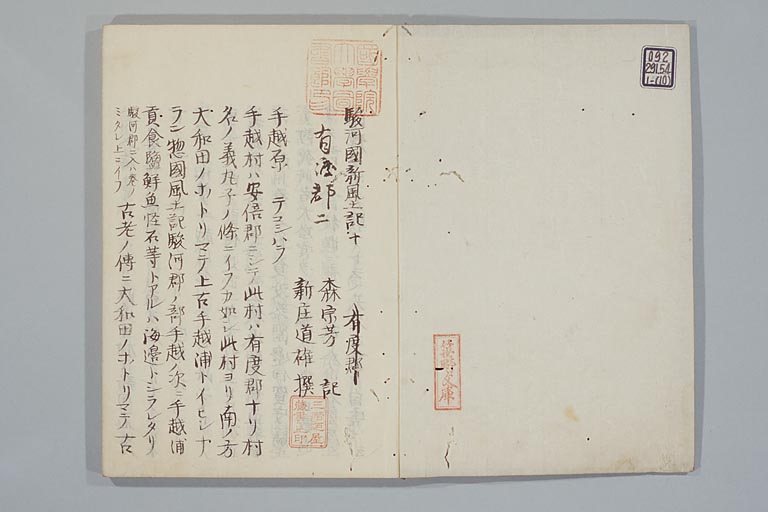 092
291.54
1-(10)
國學院
大學圖
書館印
駿河國新風土記十　有度郡
有渡郡二
森宗芳　記
新庄道雄　撰
手越原　テコシハラ
手越村ハ安倍郡ニシテ此村ハ有度郡ナリ村
名ノ義丸子ノ條ニイフカ如シ此村ヨリ南ノ方
大和田ノホトリマテ上古手越浦トイヒシナ
ラン惣國風土記駿河郡ノ部手越ノ次ニ手越浦
貢食鹽鮮魚怪石等トアルハ海邊トシラレタリ
駿河郡ニ入ハ巻ノ
ミタレ上ニイフ
古老ノ傳ニ大和田ノホトリマテ古